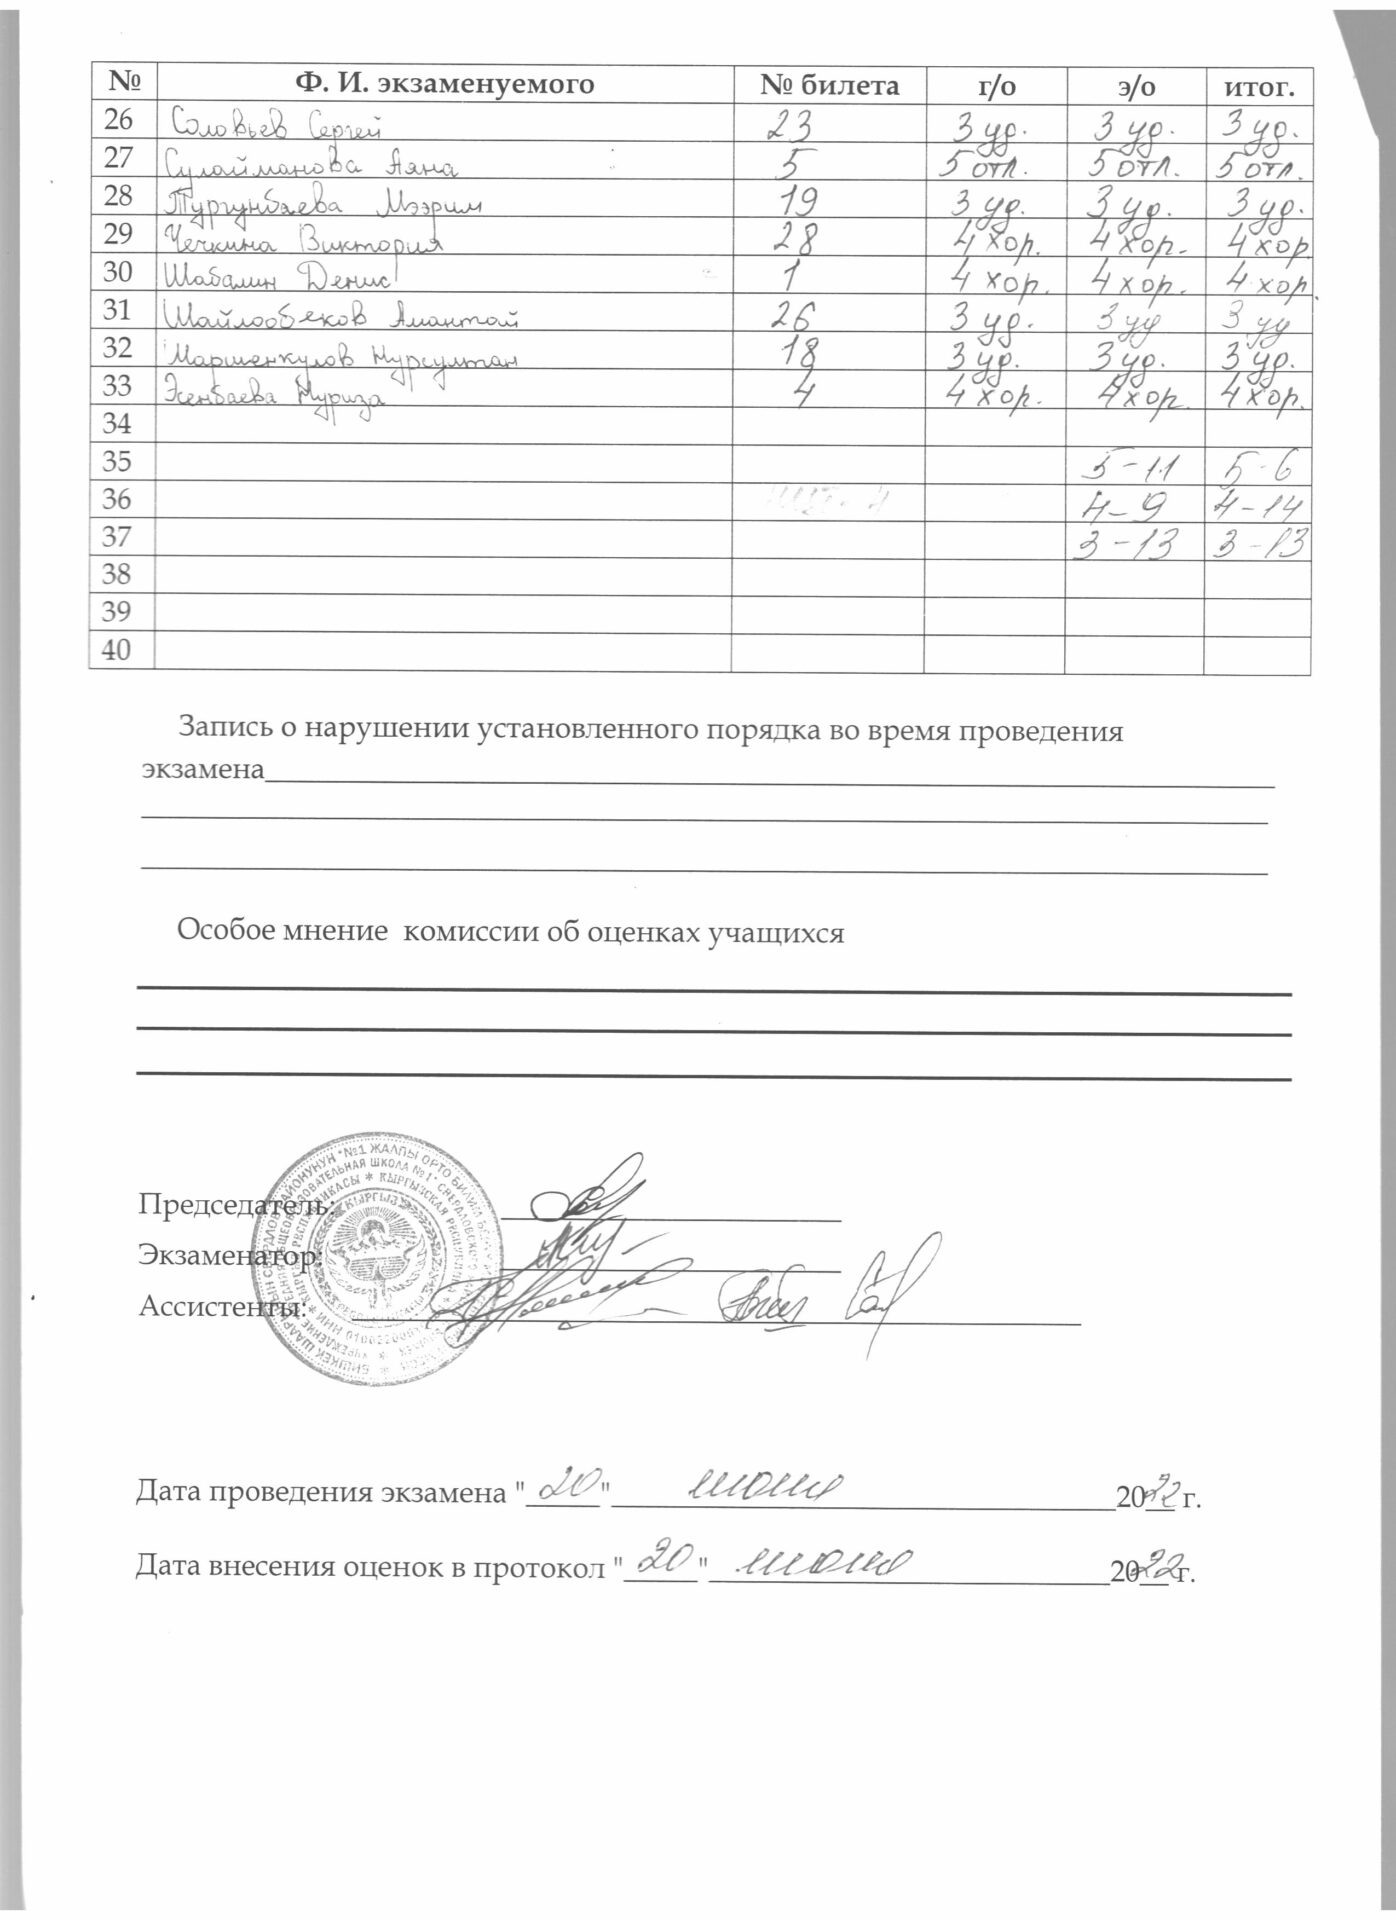 № Ф. И. экзаменуемого № билета г/о э/о итог.
26 Соловьев Сергей 23 3 уд. 3 уд. 3 уд.
27 Сулайманова Аяна 5 5 отл. 5 отл. 5 отл.
28 Тургунбаева Мээрим 19 3 уд. 3 уд. 3 уд.
29 Чечкина Виктория 28 4 хор. 4 хор. 4 хор.
30 Шабалин Денис 1 4 хор. 4 хор. 4 хор.
31 Шайлообеков Амантай 26 3 уд. 3 уд 3 уд
32 Маршенкулов Нурсултан 18 3 уд. 3 уд. 3 уд.
33 Эсенбаева Нуриза 4 4 хор. 4 хор. 4 хор.
34
35 5-11 5-6
36 4-9 4-14
37 3-13 3-13
38
39
40
Запись о нарушении установленного порядка во время проведения
экзамена
Особое мнение комиссии об оценках учащихся
Председатель:
Экзаменатор:
Ассистенты:
Дата проведения экзамена "20" июня 2022 г.
Дата внесения оценок в протокол "20" июня 2022 г.